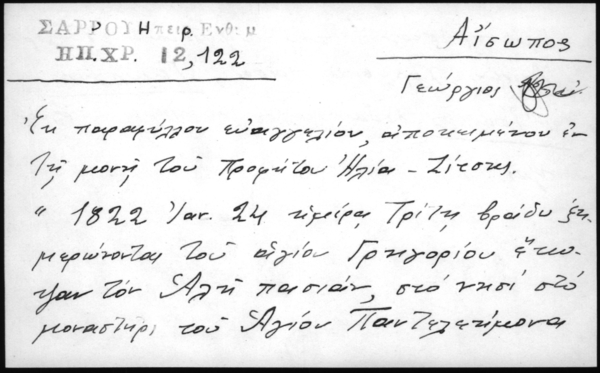 ΣΑΡΡΟΥ Ηπειρ. Ενθυμ
ΗΠ. ΧΡ. 12, 122
Αἴσωπος
Γεώργιος
Ἐκ παραφύλλου εὐαγγελίου, ἀποκειμένου ἐν
τῇ μονῇ τοῦ Προφήτου Ἠλία - Ζίτσης.
" 1822 Ἰαν. 24 ἡμέρα Τρίτη βράδυ ξη-
μερώνοντας τοῦ ἁγίου Γρηγορίου ἔκο-
ψαν τὸν Ἀλῆ πασιάν, στὸ νησὶ στὸ
μοναστῆρι τοῦ Ἁγίου Παντελεήμονα